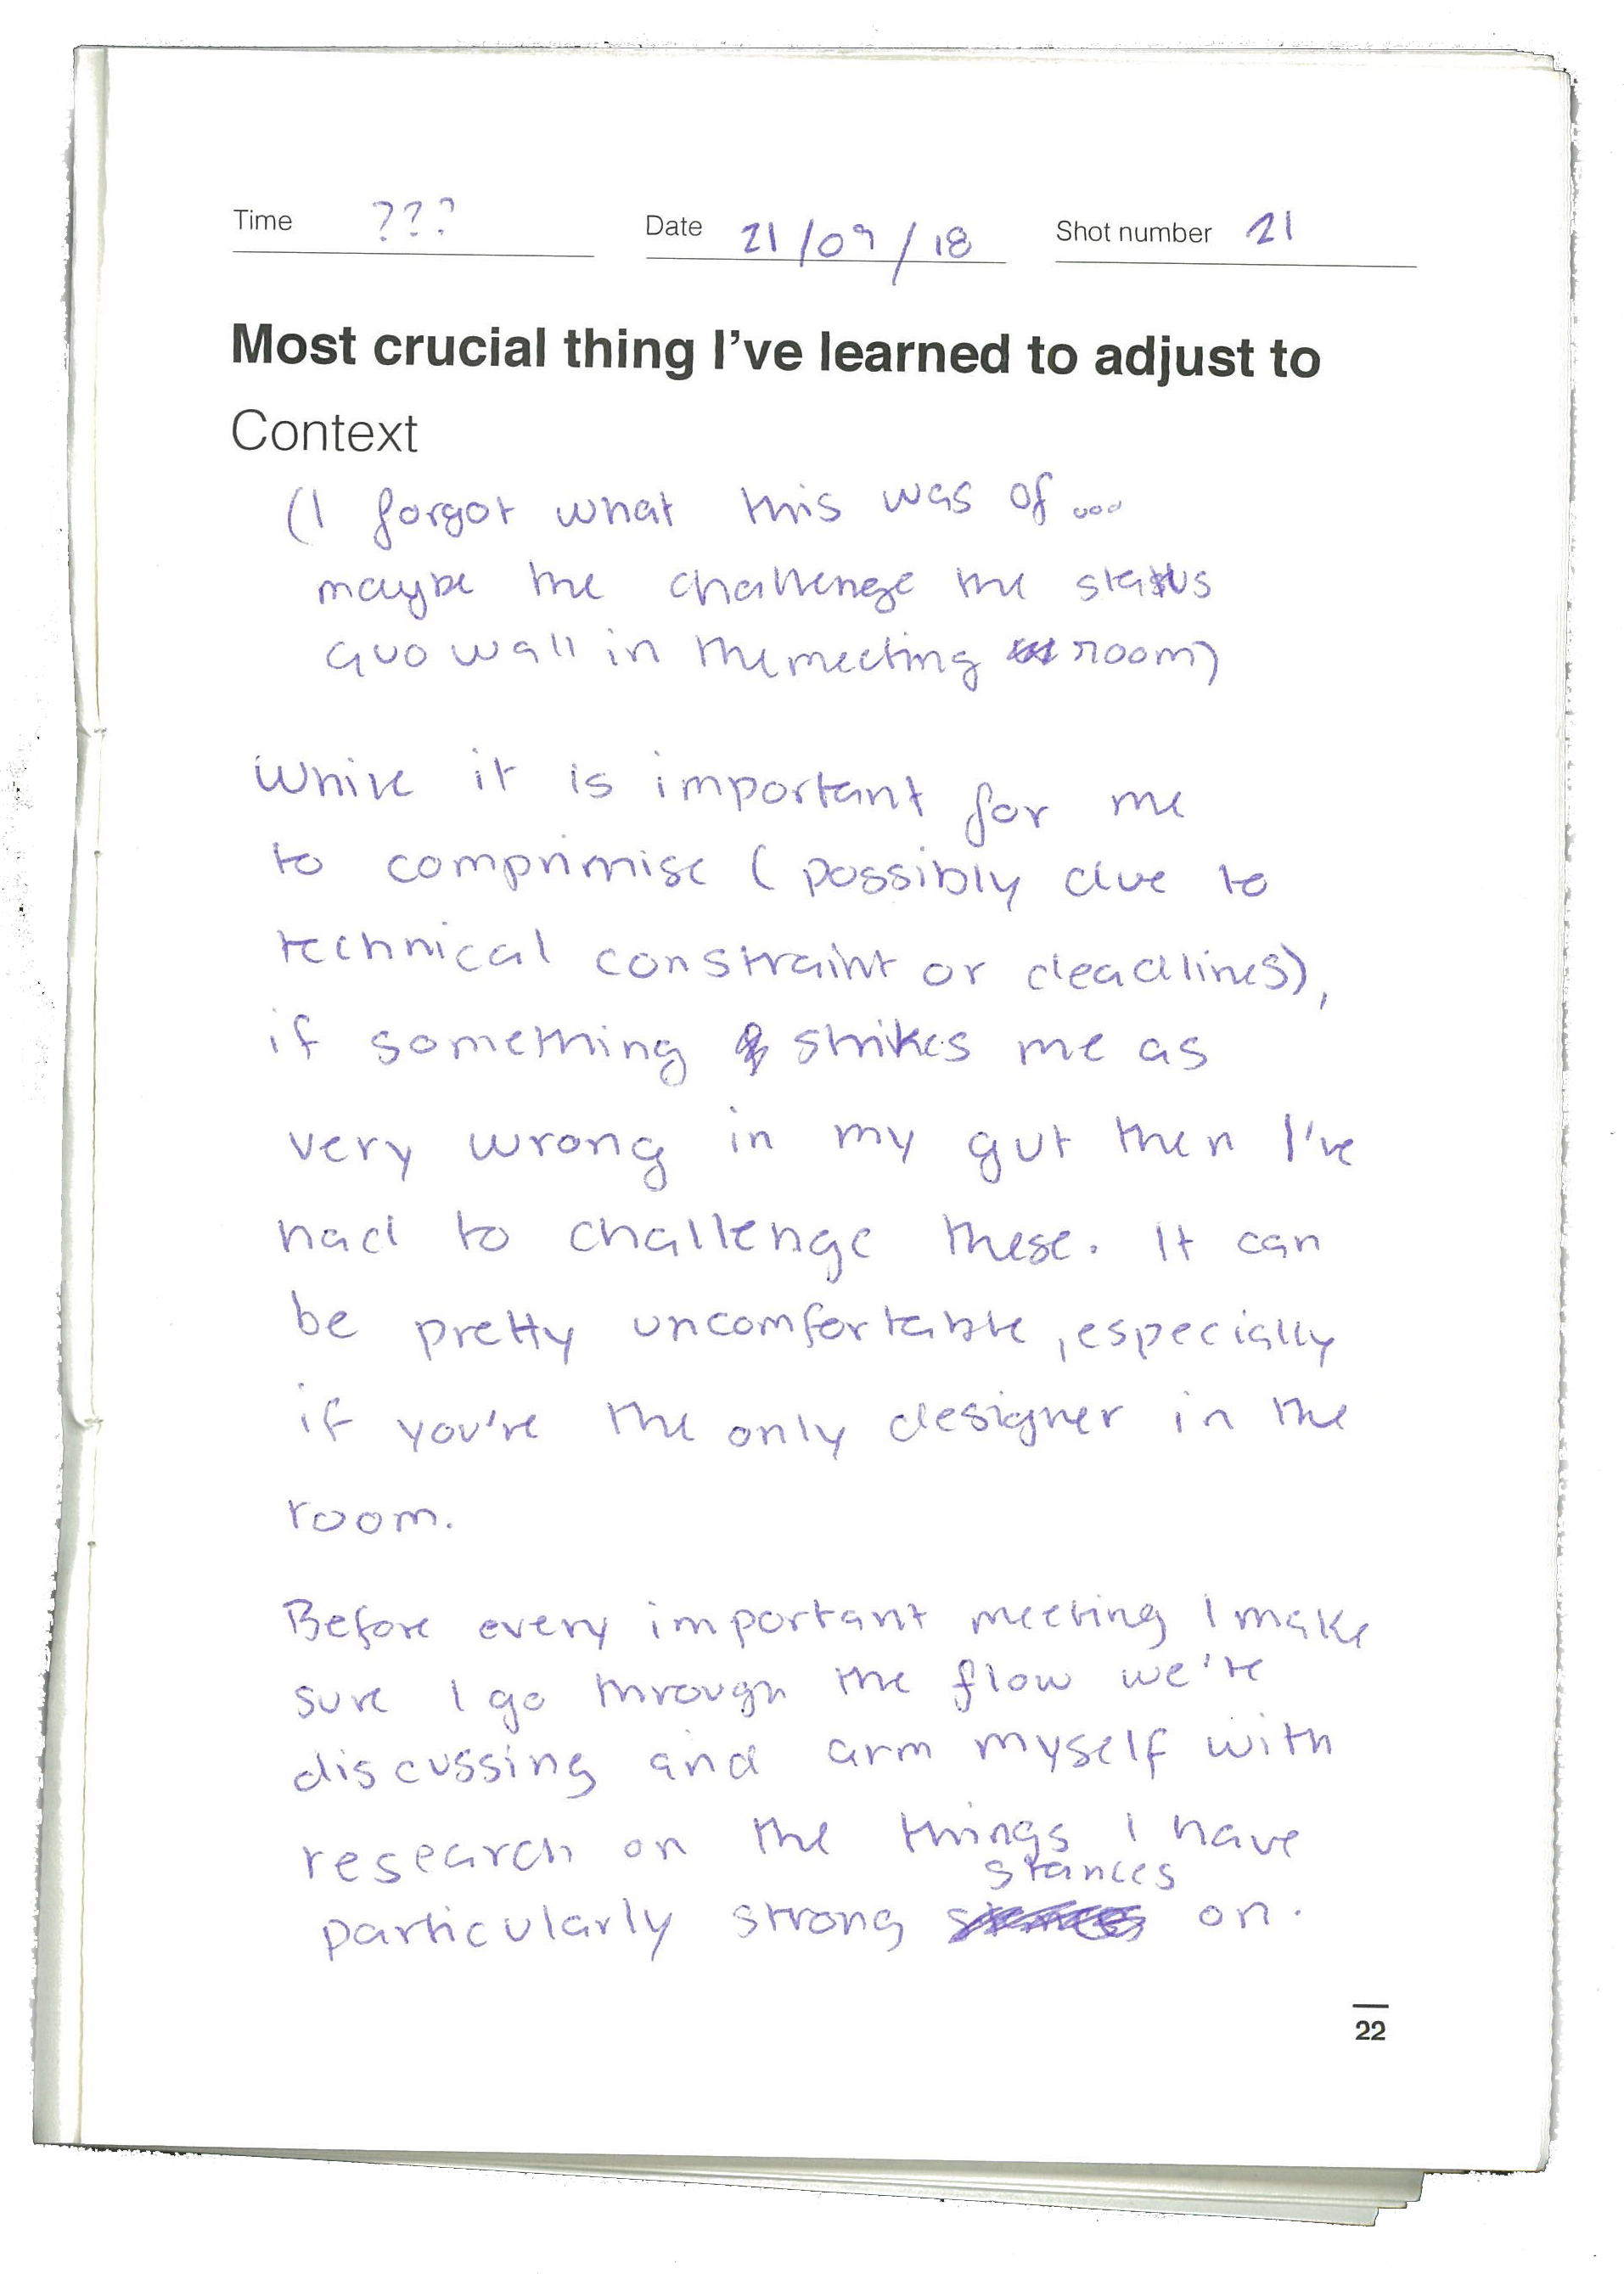 Time ??? Date 21/09/18 Shot number 21
Most crucial thing I've learned to adjust to
Context
(I forgot what this was of...
maybe the challenge the status
quo wall in the meeting room)
While it is important for me
to comprimise (possibly due to
technical constraint or deadlines),
if something strikes me as
very wrong in my gut then I've
had to challenge these. It can
be pretty uncomfortable, especially
if you're the only designer in the
room.
Before every important meeting I make
sure I go through the flow we're
discussing and arm myself with
research on the things I have
particularly strong stances on.
22